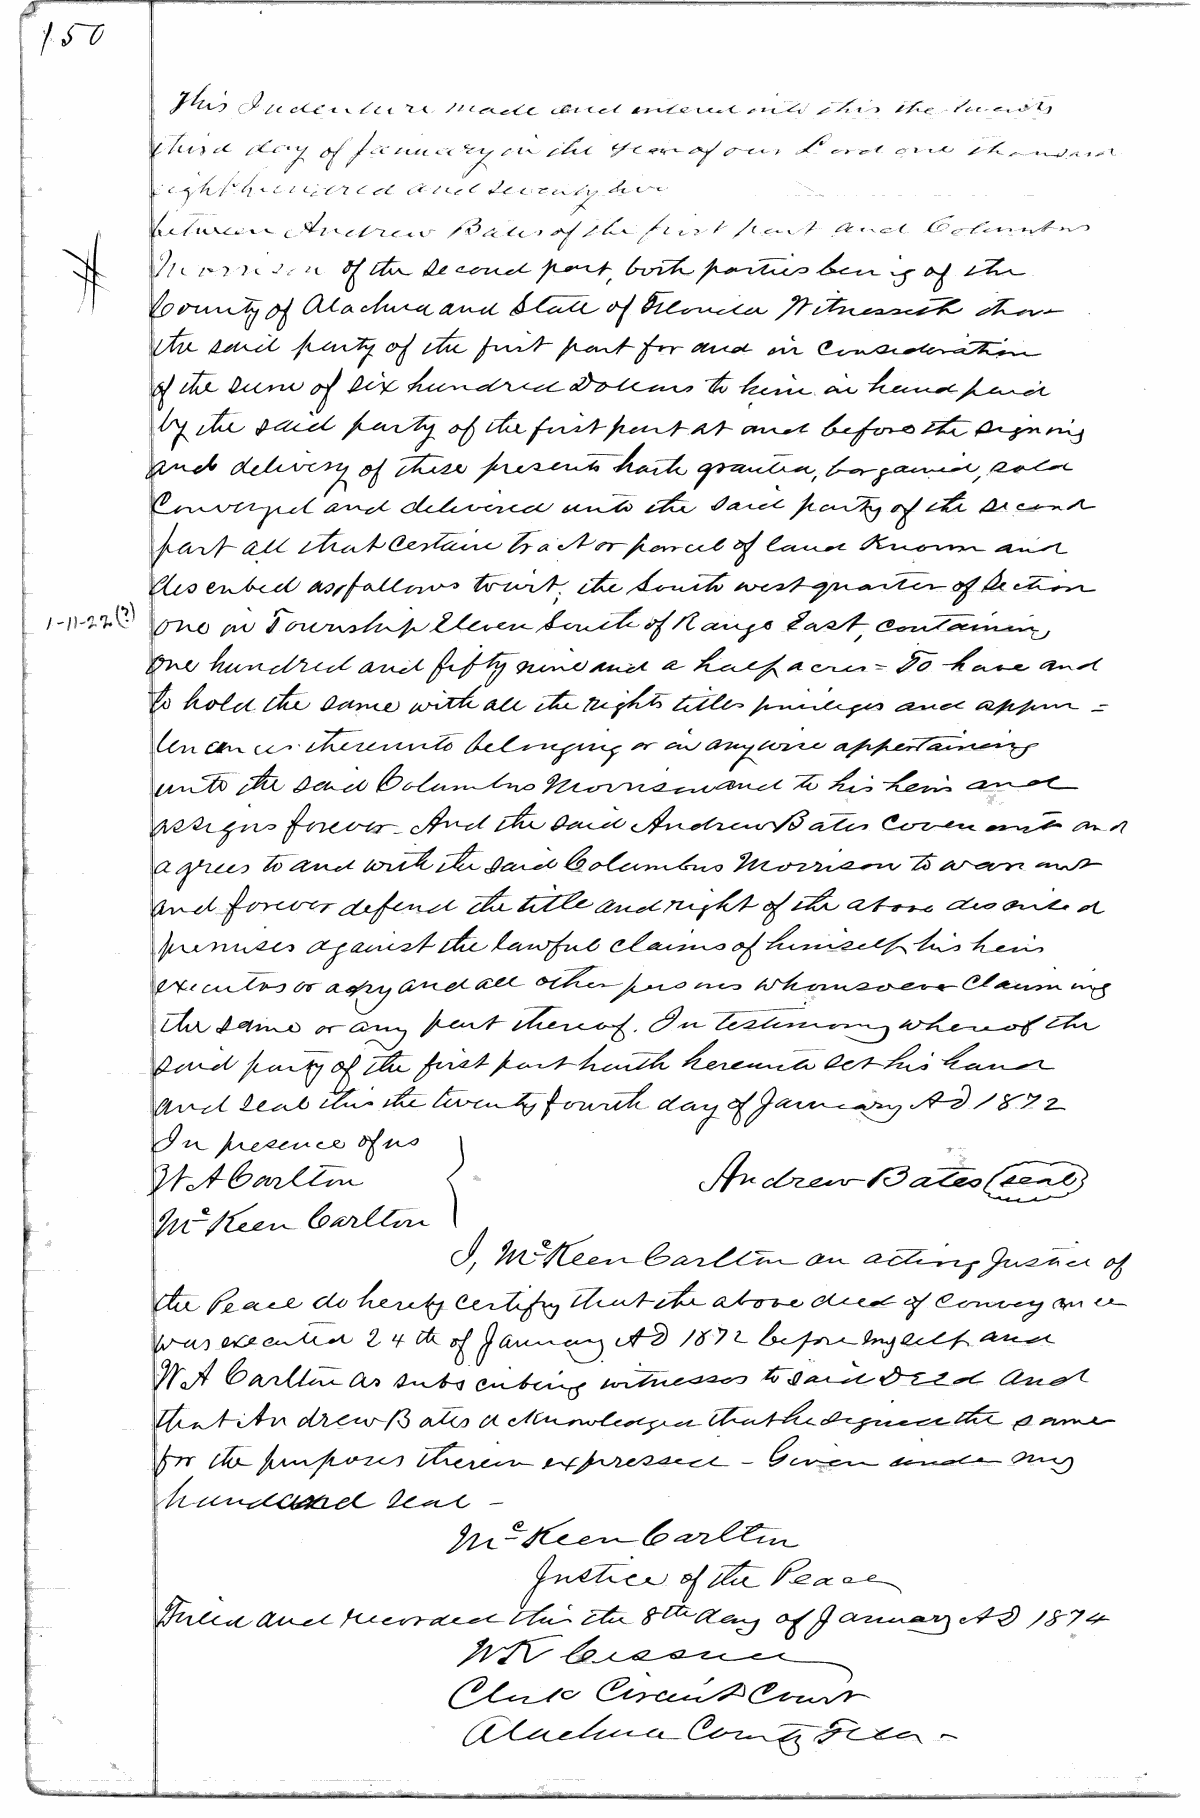 150
This Indenture made and entered into this the twenty
third day of January in the year of our Lord one thousand
eight hundred and seventy two
between Andrew Bates of the first part and Columbus
Morrison of the second part, both parties being of the
County of Alachua and State of Florida Witnesseth that
the said party of the first part for and in consideration
of the sum of six hundred Dollars to him in hand paid
by the said party of the first part at and before the signing
and delivery of these presents hath granted, bargained, sold
Conveyed and delivered unto the said party of the second
part all that certain tract or parcel of land Known and
described as follows towit; the South west quarter of Section
1-11-22(?)
one in Township Eleven South of Range East, containing
one hundred and fifty nine and a half acres = To have and
to hold the same with all the rights titles privileges and appur =
tenances thereunto belonging or in anywise appertaining
unto the said Columbus Morrison and to his heirs and
assigns forever - And the said Andrew Bates Covenants and
agrees to and with the said Columbus Morrison to warrant
and forever defend the title and right of the above described
premises against the lawful claims of himself his heirs
executors or and all other persons whomsoever Claiming
the same or any part thereof. In testimony whereof the
said party of the first part hath hereunto set his hand
and seal this the twenty fourth day of January AD 1872
In presence of us
W A Carlton
Andrew Bates (seal)
McKeen Carlton
I, McKeen Carlton an acting Justice of
the Peace do hereby certify that the above deed of Conveyance
was executed 24th of January AD 1872 before myself and
W A Carlton as subscribing witnesses to said Deed And
that Andrew Bates acknowledged that he signed the same
for the purposes therein expressed - Given under my
hand and seal -
McKeen Carlton
Justice of the Peace
Filed and recorded this the 8th day of January AD 1874
W K Cessna
Clerk Circuit Court
Alachua County Fla -